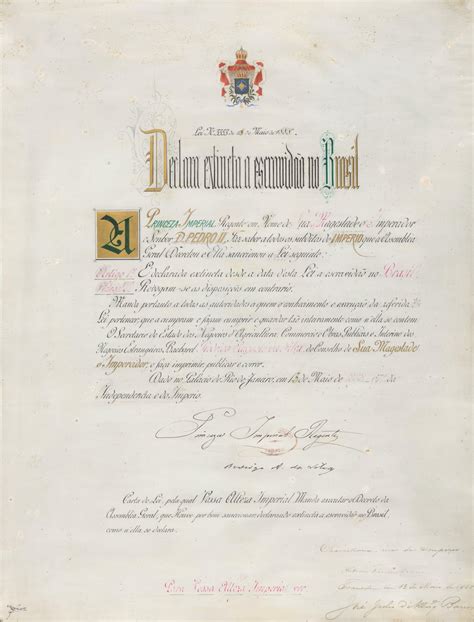 Lei N. 3353 de 13 de Maio de 1888.
Declara extincta a escravidão no Brasil
A PRINCEZA IMPERIAL Regente em Nome de Sua Magestade o Imperador
o Senhor D. PEDRO II, Faz saber a todos os subditos do IMPERIO que a Assembléa
Geral Decretou e Ella sanccionou a Lei seguinte:
Artigo 1º É declarada extincta desde a data desta Lei a escravidão no Brasil.
Revogam-se as disposições em contrario.
Manda portanto a todas as autoridades a quem o conhecimento e execução da referida
Lei pertencer, que a cumpram e façam cumprir e guardar tão inteiramente como n'ella se contem.
O Secretario de Estado dos Negocios d'Agricultura, Commercio e Obras Publicas e Interino dos
Negocios Estrangeiros, Bacharel do Conselho de Sua Magestade
o Imperador, o faça imprimir, publicar e correr.
Dado no Palacio do Rio de Janeiro, em 13 de Maio de da
Independencia e do Imperio.
Princeza Imperial Regente
Rodrigo A. da Silva
Carta de Lei, pela qual Vossa Alteza Imperial Manda executar o Decreto da
Assembléa Geral, que Houve por bem sanccionar declarando extincta a escravidão no Brasil,
como n'ella se declara.
Para Vossa Alteza Imperial ver.